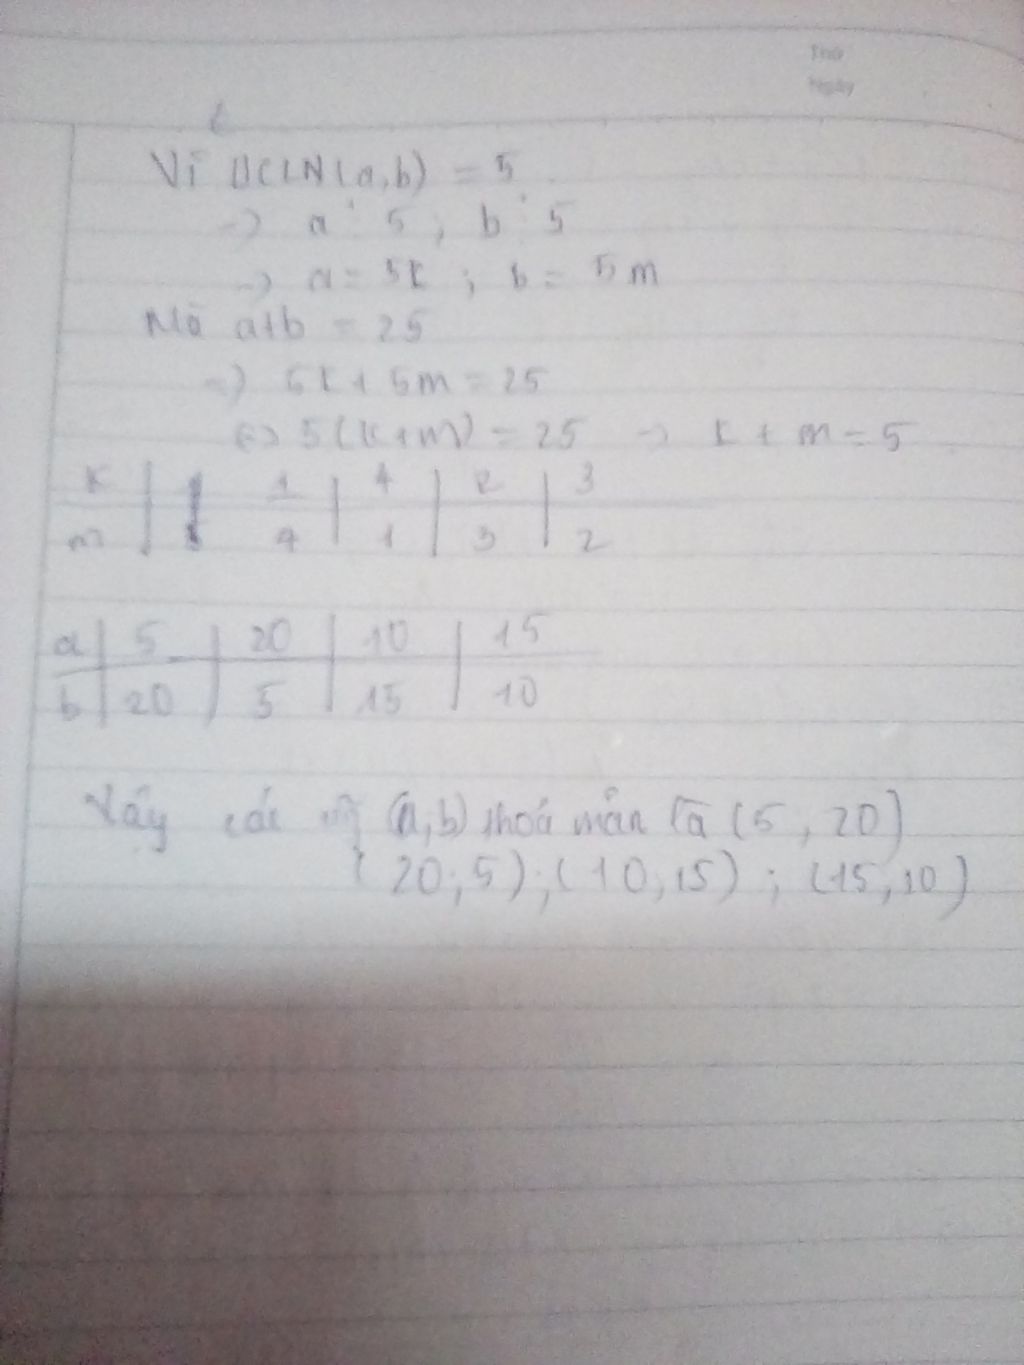 Thứ
Ngày
Vì ƯCLN(a,b) = 5
=> a ⋮ 5 ; b ⋮ 5
=> a = 5k ; b = 5m
Mà a+b = 25
=> 5k + 5m = 25
<=> 5(k+m) = 25 => k + m = 5
k | 1 | 4 | 2 | 3
m | 4 | 1 | 3 | 2
a | 5 | 20 | 10 | 15
b | 20 | 5 | 15 | 10
Vậy các (a,b) thoả mãn là (5, 20)
(20;5);(10,15) ; (15,10)